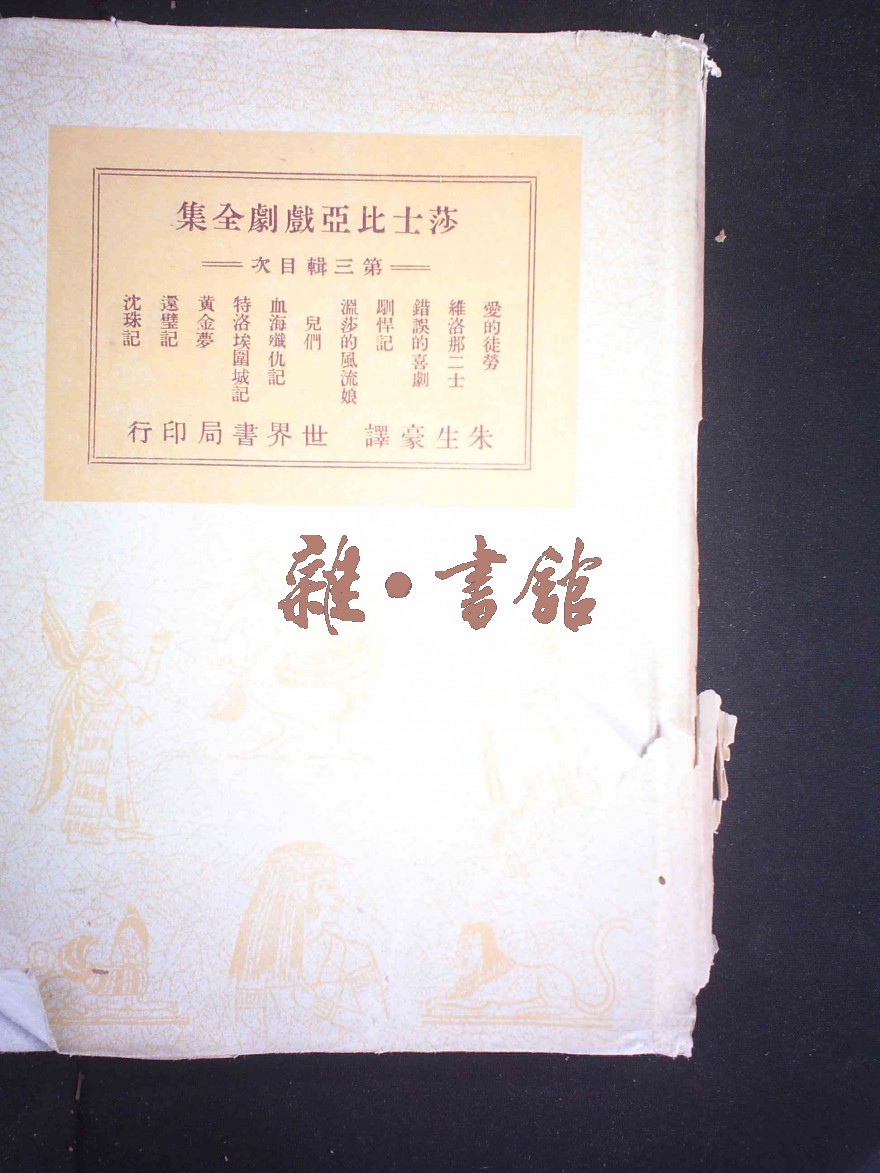 莎士比亞戲劇全集
第三輯目次
愛的徒勞
維洛那二士
錯誤的喜劇
馴悍記
溫莎的風流娘
兒們
血海殲仇記
特洛埃圍城記
黃金夢
還璧記
沈珠記
朱生豪譯 世界書局印行
雜·書館